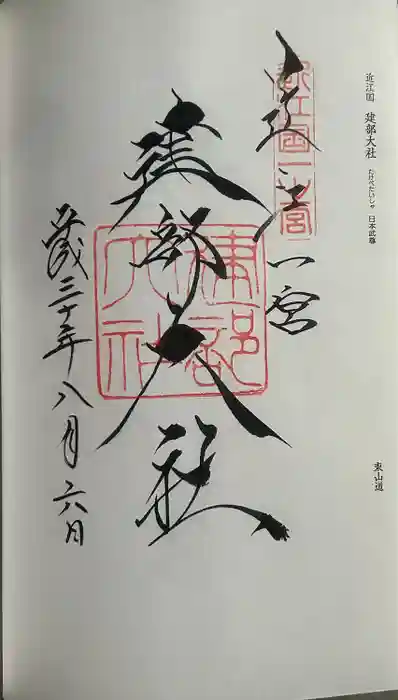 近江国 建部大社 たけべたいしゃ 日本武尊
東山道
近江国一之宮
近江一宮
建部大社
建部大社
平成三十年八月六日